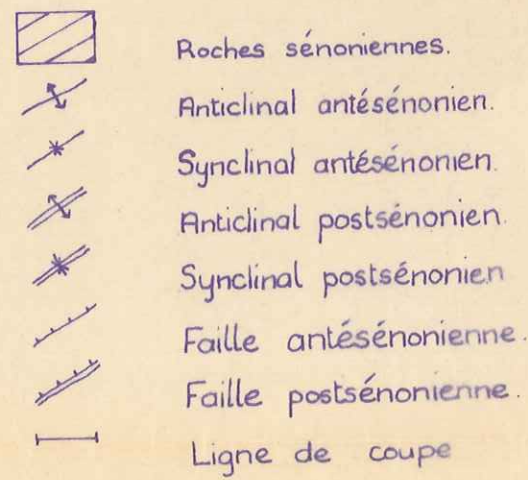 Roches sénoniennes.
Anticlinal antésénonien.
Synclinal antésénonien.
Anticlinal postsénonien.
Synclinal postsénonien
Faille antésénonienne.
Faille postsénonienne.
Ligne de coupe